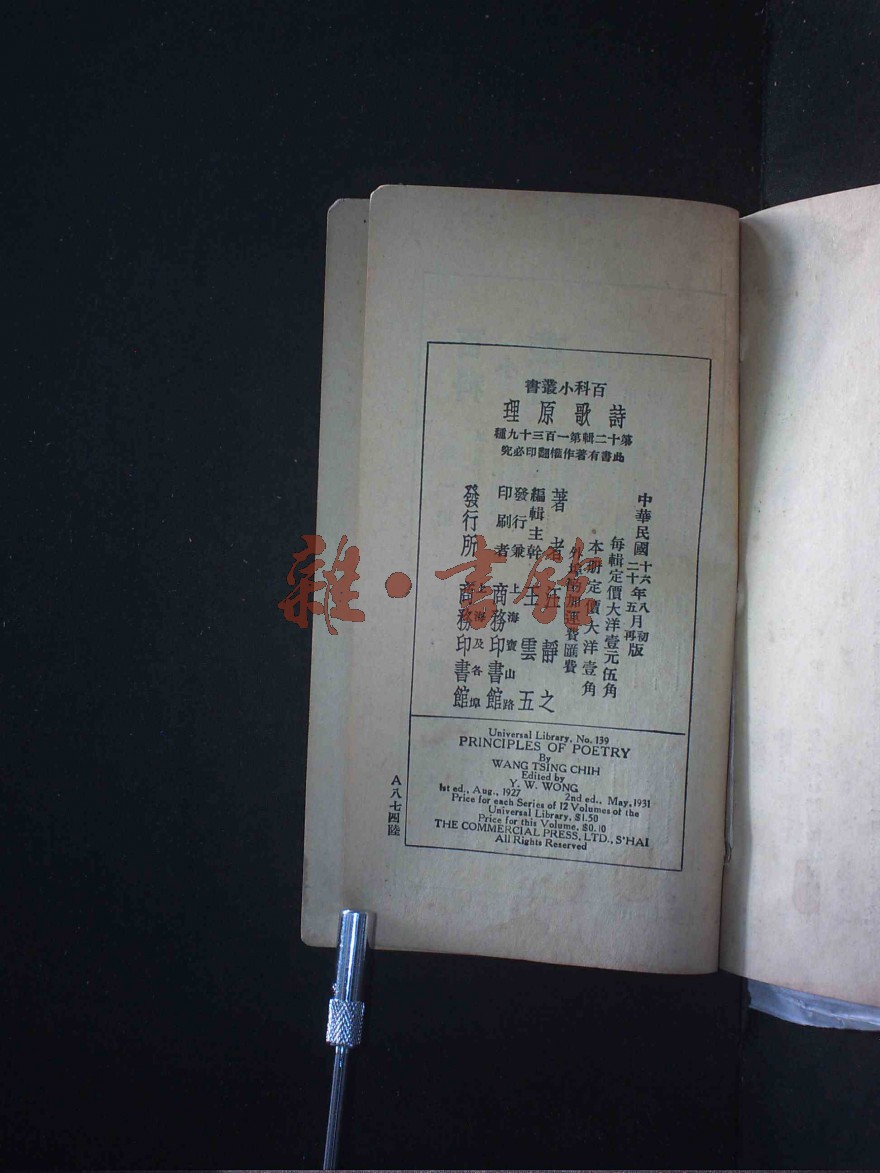 百科小叢書
詩歌原理
第十二輯第一百三十九種
此書有著作權翻印必究
中華民國十六年八月初版
二十年五月再版
每輯定價大洋壹元伍角
本册定價大洋壹角
外埠酌加運費匯費
著者 汪靜之
編輯主幹 王雲五
發行兼印刷者 上海寶山路 商務印書館
發行所 上海及各埠 商務印書館
Universal Library, No. 139
PRINCIPLES OF POETRY
By
WANG TSING CHIH
Edited by
Y. W. WONG
1st ed., Aug., 1927 2nd ed., May, 1931
Price for each Series of 12 Volumes of the
Universal Library, $1.50
Price for this Volume, $0.10
THE COMMERCIAL PRESS, LTD., S'HAI
All Rights Reserved
A八七四陸
雜·書館